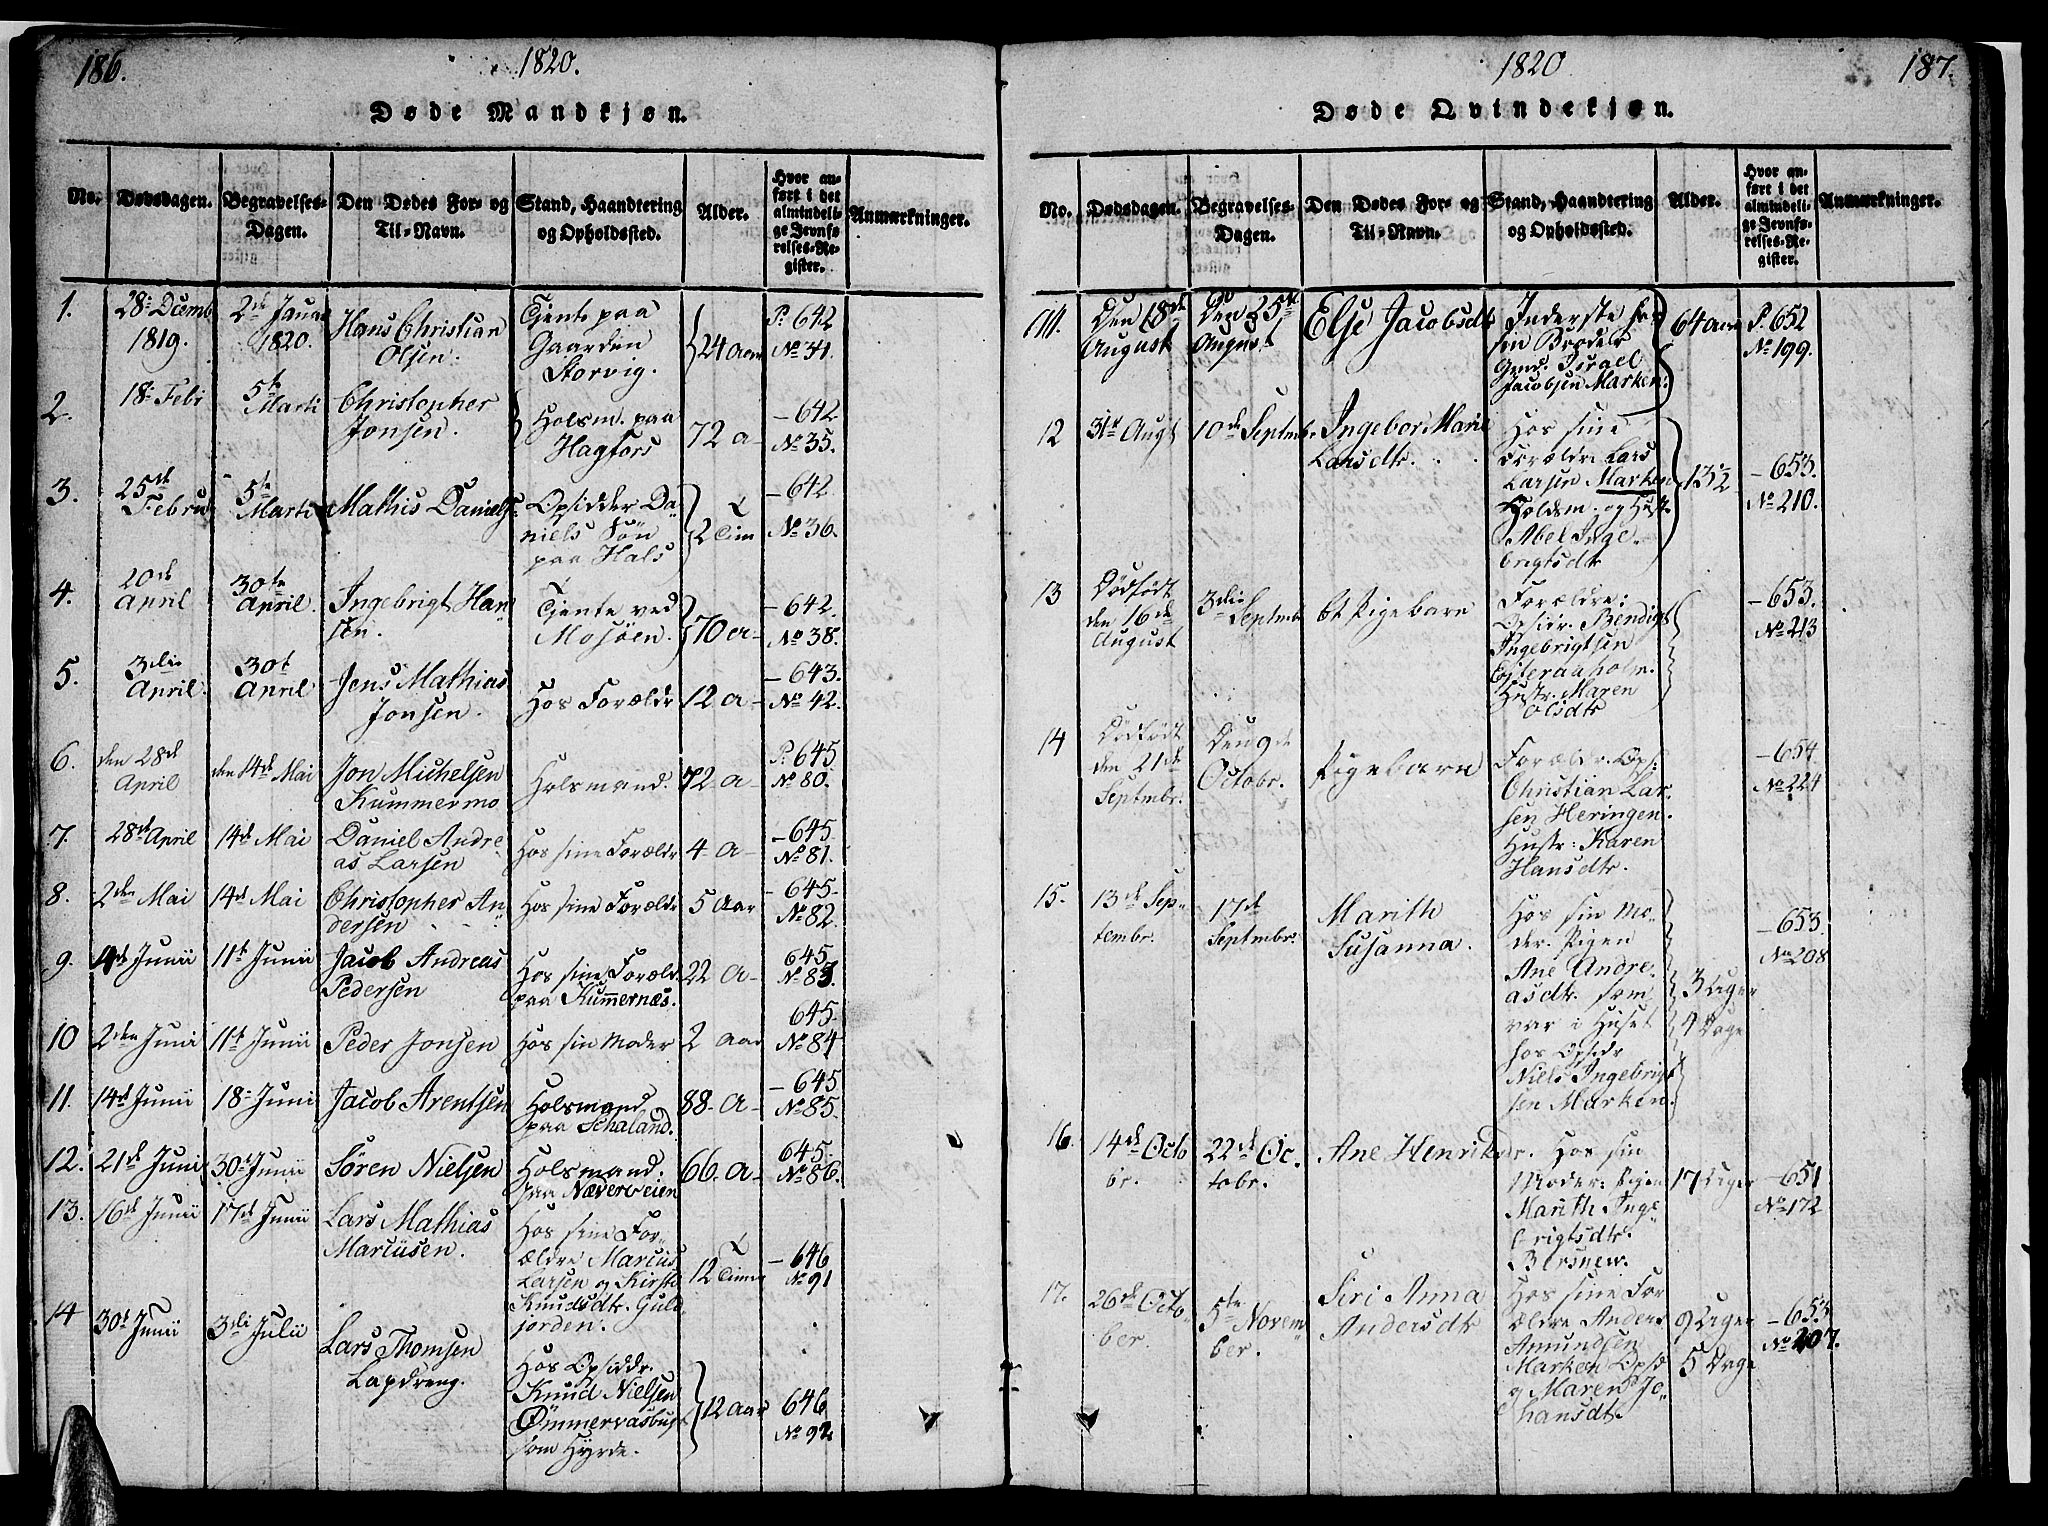 186.
1820.
Døde Mandkjøn.
No.
Dødsdagen.
Begravelses-
Dagen.
Den Dødes For- og
Til-Navn.
Stand, Haandtering
og Opholdssted.
Alder.
Hvor an-
ført i det
almindeli-
ge Jevnfø-
relses-Re-
gister.
Anmærkninger.
1.
28de Decemb
1819.
2de Januar
1820.
Hans Christian
Olsen.
Tjente paa
Gaarden
Storvig.
24 Aar
P. 642
No 34.
2.
18 Febr
5te
Marti
Christopher
Jonsen.
Holsm. paa
Hagfors
72 a-
- 642
No 35.
3.
25de
Februa
5te
Marti
Mathis Daniels.
Opsidder Da-
niels Søn
paa Hals
2 Tim
- 642
No 36.
4.
20de
April
30te
April.
Ingebrigt Han
sen.
Tjente ved
Mosøen.
70 a-
- 642.
No 38.
5.
3die
April.
30t
April
Jens Mathias
Jonsen.
Hos Forældr
12 a-
- 643.
No 42.
6.
den 28de
April
den 14de Mai
Jon Michelsen
Kummermo
Holsmand.
72 a-
P. 645
No 80.
7.
28de April
14de Mai
Daniel Andre
as Larsen
Hos sine Forældr
4 a-
- 645.
No 81.
8.
2den Mai
14de Mai
Christopher An
dersen
Hos sine Forældr
5 Aar
- 645.
No 82.
9.
4de Junii
11te Junii
Jacob Andreas
Pedersen
Hos sine Foræld
paa Kummernæs.
22 a-
645
No 83.
10
2den Junii
11te Junii
Peder Jonsen
Hos sin Moder
2 Aar
645.
No 84
11.
14de Junii
18 Juni
Jacob Arentsen
Holsmand
paa Schaland.
88 a-
- 645
No 85.
12.
21de Juni
30te Junii
Sören Nielsen
Holsmand.
paa Næverveien
66 a-
645.
No 86.
13.
16de Junii
17de Junii
Lars Mathias
Marcusen.
Hos sine For-
ældre Marcus
Larsen og Kirst
Knudsdtr. Guld
jorden.
12 Timer
- 646
No 91
14
30te Junii
3die Julii
Lars Thomsen
Lapdreng.
Hos Opsiddr.
Knud Nielsen
Ømmervasbugt
som Hyrde.
12 Aar
646
No 92
1820
187.
Døde Qvindekjøn.
No.
Dødsdagen.
Begravelses-
Dagen.
Den Dødes For- og
Til-Navn.
Stand, Haandtering
og Opholdssted.
Alder.
Hvor an-
ført i det
almindeli-
ge Jevnfø-
relses-Re-
gister.
Anmærkninger.
11.
Den 18de
August
Den 25de
August
Else Jacobsdtr
Inderste hos
sin Broder
Gmd. Israel
Jacobsen Marken.
64 Aar
P. 652
No 199.
12
31te Augt
10de Septmbr.
Ingebor Marie
Larsdtr.
Hos sine
Forældre Lars
Larsen Marken
Holdsm. og Hustr
Abel Inge-
brigtsdtr
13½
- 653.
No 210.
13
Dødfødt
den 16de
August
3die
Septmbr
Et Pigebarn
Forældre:
Opsidr. Bendigt
Ingebrigtsen
Hustr. Maren
Olsdtr
- 653.
No 213
14
Dødfødt
den 21de
Septmbr.
Den 9de
Octobr.
Pigebarn
Forældr. Ops.
Christian Lar-
sen Heringen.
Hustr: Karen
Hansdtr.
- 654
No 224
15.
13de Sep-
tembr.
17de
Septmbr.
Marith
Susanna.
Hos sin Mo-
der. Pigen
Ane Andre-
asdtr. som
var i Huset
hos Opsidr
Niels Ingebrigt
sen Marken.
3 Uger
4 Dage
- 653.
No 208
16.
14de Octo
br.
22de Oc-
tobr.
Ane Henriksdr.
Hos sin
Moder: Pigen
Marith Inge-
brigtsdtr.
17 Uger
- 651
No 172
17.
26de Octo
ber.
5te Novem
ber.
Siri Anna
Andersdtr
Hos sine For
ældre Anders
Amundsen
Marken Opsd
og Maren Jo-
hansdtr.
9 Uger
5 Dage
- 653
No 207.